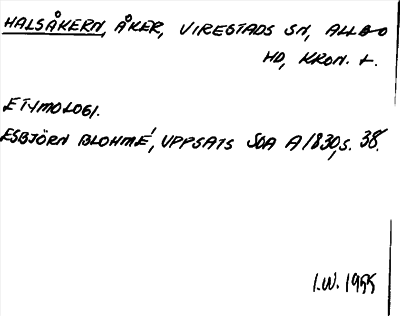 HALSÅKERN, ÅKER, VIRESTADS SN, ALLBO
HD, KRON. L.
ETYMOLOGI.
ESBJÖRN BLOHMÉ, UPPSATS SOA A1830, S. 38.
I.W. 1955